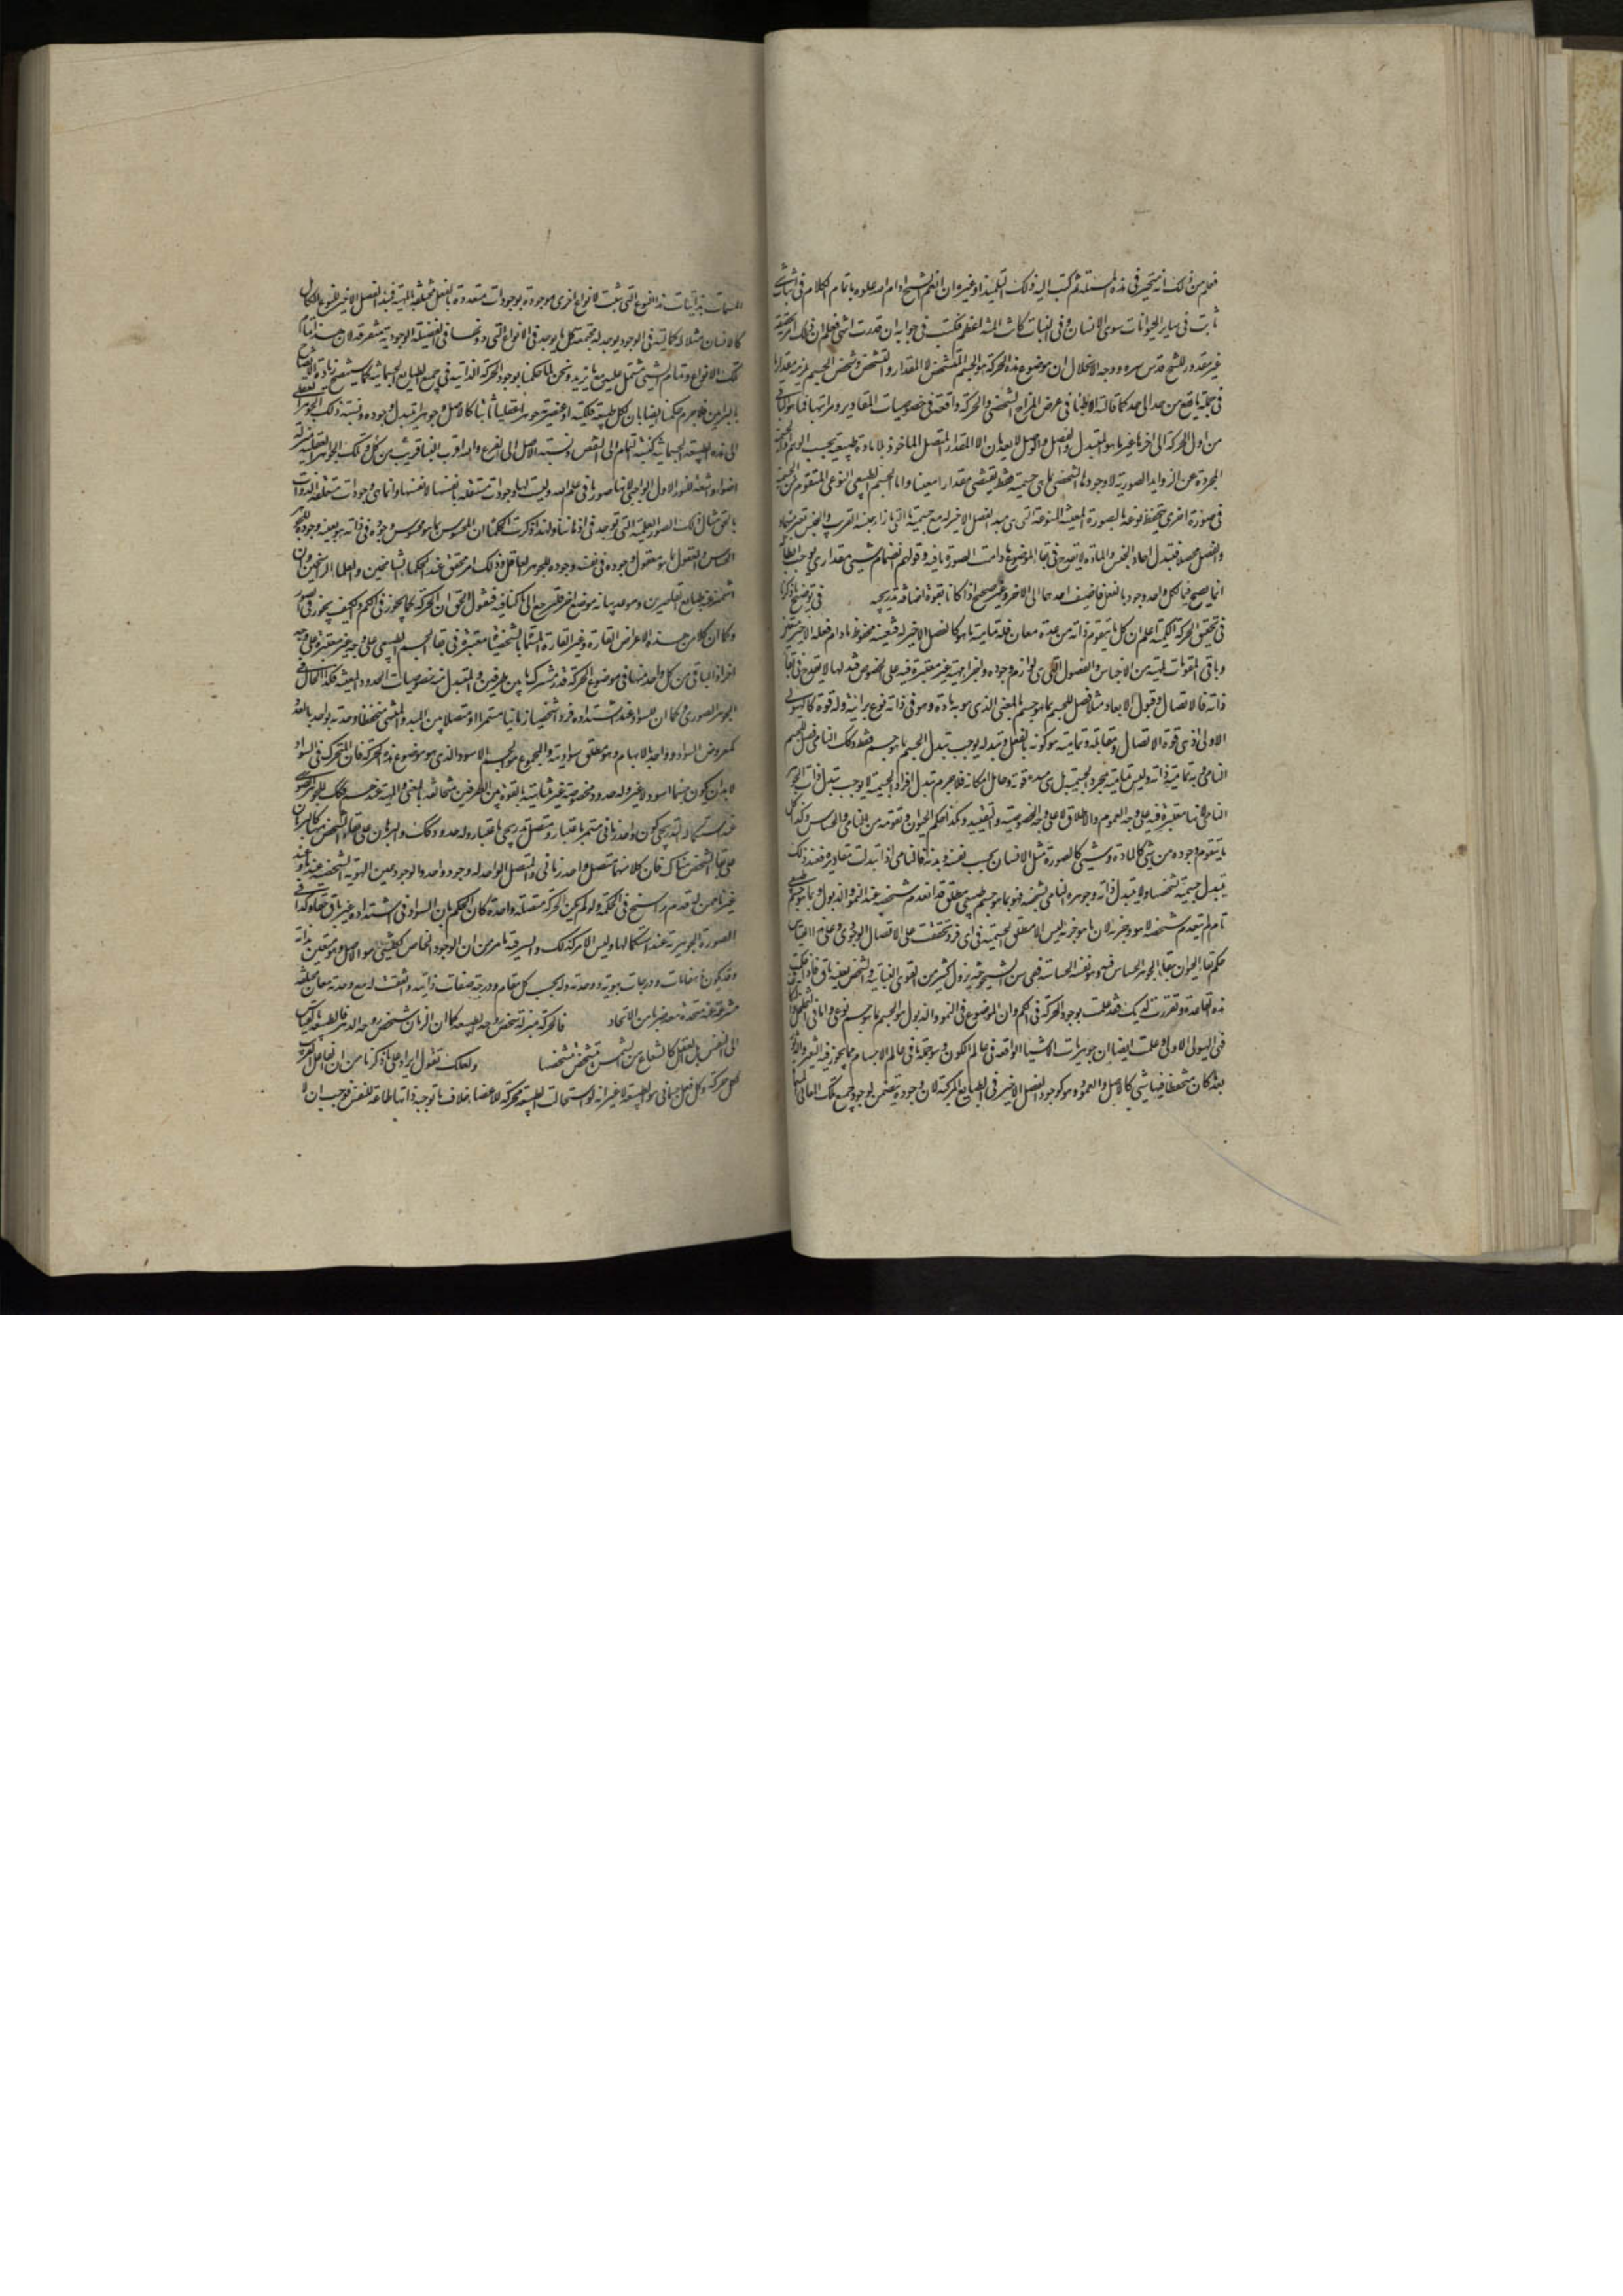 فعلم من ذلك انه متحير فى هذه المسئلة ثم كتب اليه ذلك التلميذ او غيره ان انعم الشيخ ادام الله علوه باتمام الكلام فى اثبات شئ
ثابت فى ساير الحيوانات سوى الانسان وفى النبات كانت المنة اعظم فكتب فى جوابه ان قدرت انتهى فعلم ان ذلك امر
غير مقدور للشيخ قدس سره ووجه الانحلال ان موضوع هذه الحركة هو الجسم المتشخص لا المقدار المتشخص وتشخص الجسم يلزمه مقدار ما
فى جملة ما يقع من حد الى حد كما قالته الاطباء فى عرض المزاج الشخصى والحركة واقعة فى خصوصيات المقادير ومراتبها فما هو الباقى
من اول الحركة الى اخرها غير ما هو المتبدل والفصل والوصل لا يعدمان الا المقدار المتصل الماخوذ بلا مادة طبيعية بحسب الوهم والجسمية
المجردة عن الزوايد الصورية لا وجود لها الشخصى باى جسمية فقط يقتضى مقدارا معينا واما الجسم الطبيعى النوعى المتقوم من الجسمية
فى صورة اخرى تنحفظ نوعه بالصورة المعينة المنوعة التى هى مبدء الفصل الاخير له مع جسمية ما التى بازاء جنسه القريب والجنس يعتبر مبهما
والفصل محصلا فتبدل احاد الجنس والمادة لا يقدح فى بقاء الموضوع ما دامت الصورة باقية وقولهم انضمام شئ مقدارى يوجب ابطاله
انما يصح فيما لكل واحد وجود بالفعل فاضيف احدهما الى الاخر وغير صحيح اذا كانا بقوة اضافة تدريجية فى توضيح ما ذكرنا
فى تحقيق الحركة الكمية اعلم ان كل ما يتقوم ذاته من عدة معان فله تمامية بما هو كالفصل الاخير له فتعينه محفوظ ما دام فصله الاخير متعين
وباقى المقومات لمهيته من الاجناس والفصول التى هى لوازم وجوده واجزاء مهيته غير معتبرة فيه على الخصوص فتبدلها لا يقدح فى بقاء
ذاته فالاتصال وقبول الابعاد مثلا فصل للجسم بما هو جسم بالمعنى الذى هو به مادة وهو فى ذاته نوع براسه وله قوة كالهيولى
الاولى اذ هى قوة الاتصال ومقابله وتماميته هو كونه بالفعل وتبدله يوجب تبدل الجسم بما هو جسم فقط وكذلك النامى فصل للجسم
النامى به تمامية ذاته وليس تماميته بمجرد الجسمية بل هى مبدء قوته وحامل امكانه فلا جرم تبدل افراد الجسمية لا يوجب تبدل ذات الجوهر
النامى لانها معتبرة فيه على وجه العموم والاطلاق لا على وجه الخصوصية والتقييد وهكذا حكم الحيوان وتقومه من النامى والحساس وكذا كل
ما يتقوم وجوده من شئ كالمادة وشئ كالصورة مثل الانسان بحسب نفسه وبدنه فالنامى اذا تبدلت مقاديره فعند ذلك
يتبدل جسمية تشخصا ولا يتبدل ذاته وجوهره النامى بشخصه فهو بما هو جسم طبيعى مطلق قد انعدم شخصه عند النمو والذبول وبما هو جسم طبيعى
نام لم ينعدم شخصه لا هو ولا جزئه لان ما هو جزئه ليس الا مطلق الجسمية فى اى فرد تحققت على الاتصال الوجودى وعلى هذا القياس
حكم بقاء الحيوان ببقاء الجوهر الحساس فيه وهو نفسه الحساسة فهى من الشيخوخة يزول كثير من القوى النباتية والشخص بعينه باق فاذا علمت
هذه القاعدة وتقررت لديك فقد علمت بوجود الحركة فى الكم وان الموضوع فى النمو والذبول هو الجسم بما هو جسم نوعى واما فى التخلخل والتكاثف
فهى الهيولى الاولى وعلمت ايضا ان جوهريات الاشياء الواقعة فى عالم الكون وبالجملة ما فى عالم الاجسام مما يجوز فيه التغير والزوال
بعد كان متحفظا فيها شئ كالاصل والعمود وهو كوجود الفصل الاخير فى الطبايع المركبة لان وجوده يتضمن لوجود جميع تلك المعانى المسماة
المسمات بذاتيات هذا النوع التى ثبتت لانواع اخرى موجودة بوجودات متعددة بالفعل مختلفة المهية فمبدء الفصل الاخير للنوع الكامل
كالانسان مثلا له كمالية فى الوجود يوجد له مجتمعة كل ما يوجد فى الانواع التى دونها فى الفضيلة الوجودية متفرقة لان هذا تمام
تلك الانواع وتمام الشئ مشتمل عليه مع ما يزيد ونحن لما حكمنا بوجود الحركة الذاتية فى جميع الطبايع الجسمانية كما ستتضح زيادة الاتضاح
بالبراهين فلا جرم حكمنا ايضا بان لكل طبيعة فلكية او عنصرية جوهرا عقليا ثابتا كالاصل وجوهرا يتبدل وجوده ونسبة ذلك الجوهر العقلى
الى هذه الطبيعة الجسمانية كنسبة التمام الى النقص ونسبة الاصل الى الفرع والله اقرب الينا من كل قريب وتلك الجواهر العقلية بمنزلة
اضواء واشعة للنور الاول الواجبى لانها صور ما فى علم الله وليست لها وجودات مستقلة بانفسها لانفسها وانما هى وجودات متعلقة الذوات
بالحق مثال تلك الصور العلمية التى توجد فى اذهاننا ولهذا ذكرت الحكماء ان المحسوس بما هو محسوس وجوده فى ذاته هو بعينه وجوده للجوهر
الحساس والمعقول بما هو معقول وجوده فى نفسه وجوده للجوهر العاقل وذلك امر محقق عند الحكماء الشامخين والعلماء الراسخين وان
اشمئزت عنه طبايع القاصرين وموعد بيانه موضع اخر فلنرجع الى ما كنا فيه فنقول الحق ان الحركة كما يجوز فى الكم والكيف يجوز فى الصور
وكما ان كلا من هذه الاعراض القارة وغير القارة المتماثلة الشخصيات معتبرة فى بقاء الجسم الطبيعى على وجه غير معتبرة على وجه
اخر اذ الباقى من كل واحد منها فى موضوع الحركة قدر مشترك ما بين طرفين والمتبدل منه خصوصيات الحدود المعينة فكذا الحال فى
الجوهر الصورى وكما ان للسواد عند اشتداده فردا شخصيا زمانيا مستمرا او متصلا بين المبدء والمنتهى متحفظا وحدته بواحد بالعدد
كمعروض السواد وواحد بالابهام وهو مطلق سواديته والمجموع هو الجسم الاسود الذى هو موضوع هذه الحركة فان المتحرك فى السواد
لا بد ان يكون جسما اسود لا غير وله حدود مخصوصة غير متناهية بالقوة بين الطرفين متخالفة بالمعنى والمهية عندهم كذلك للجوهر الصورى
عند استكماله التدريجى كون واحد زمانى مستمر باعتبار ومتصل تدريجى باعتبار وله حدود كذلك والبرهان على بقاء الشخص ههنا كالبرهان
على بقاء الشخص هناك فان كلا منهما متصل واحد زمانى والمتصل الواحد له وجود واحد والوجود عين الهوية الشخصية عندنا وعند
غيرنا ممن له قدم راسخ فى الحكمة ولو لم يكن الحركة متصلة واحدة كان الحكم بان السواد فى اشتداده غير باق حقا وكذا فى
الصورة الجوهرية عند استكمالها وليس الامر كذلك والسر فيه ما مر من ان الوجود الخاص لكل شئ هو الاصل وهو متعين بذاته
وقد يكون ذا مقامات ودرجات بهويته ووحدته وله بحسب كل مقام ودرجة صفات ذاتية واتفقت له مع وحدته معان مختلفة
منتزعة عنه متحدة معه ضربا من الاتحاد فالحركة بمنزلة شخص روحه الطبيعة كما ان الزمان شخص روحه الدهر فالطبيعة بالقياس
الى النفس بل العقل كالشعاع من الشمس يتشخص بتشخصها ولعلك تقول ايرادا على ما ذكرنا من ان الفاعل القريب
لكل حركة وكل فعل جسمانى هو الطبيعة لا غير انه لو استحالت الطبيعة محركة للاعضاء خلاف ما توجبه ذاتها طاعة للنفس فوجب ان لا